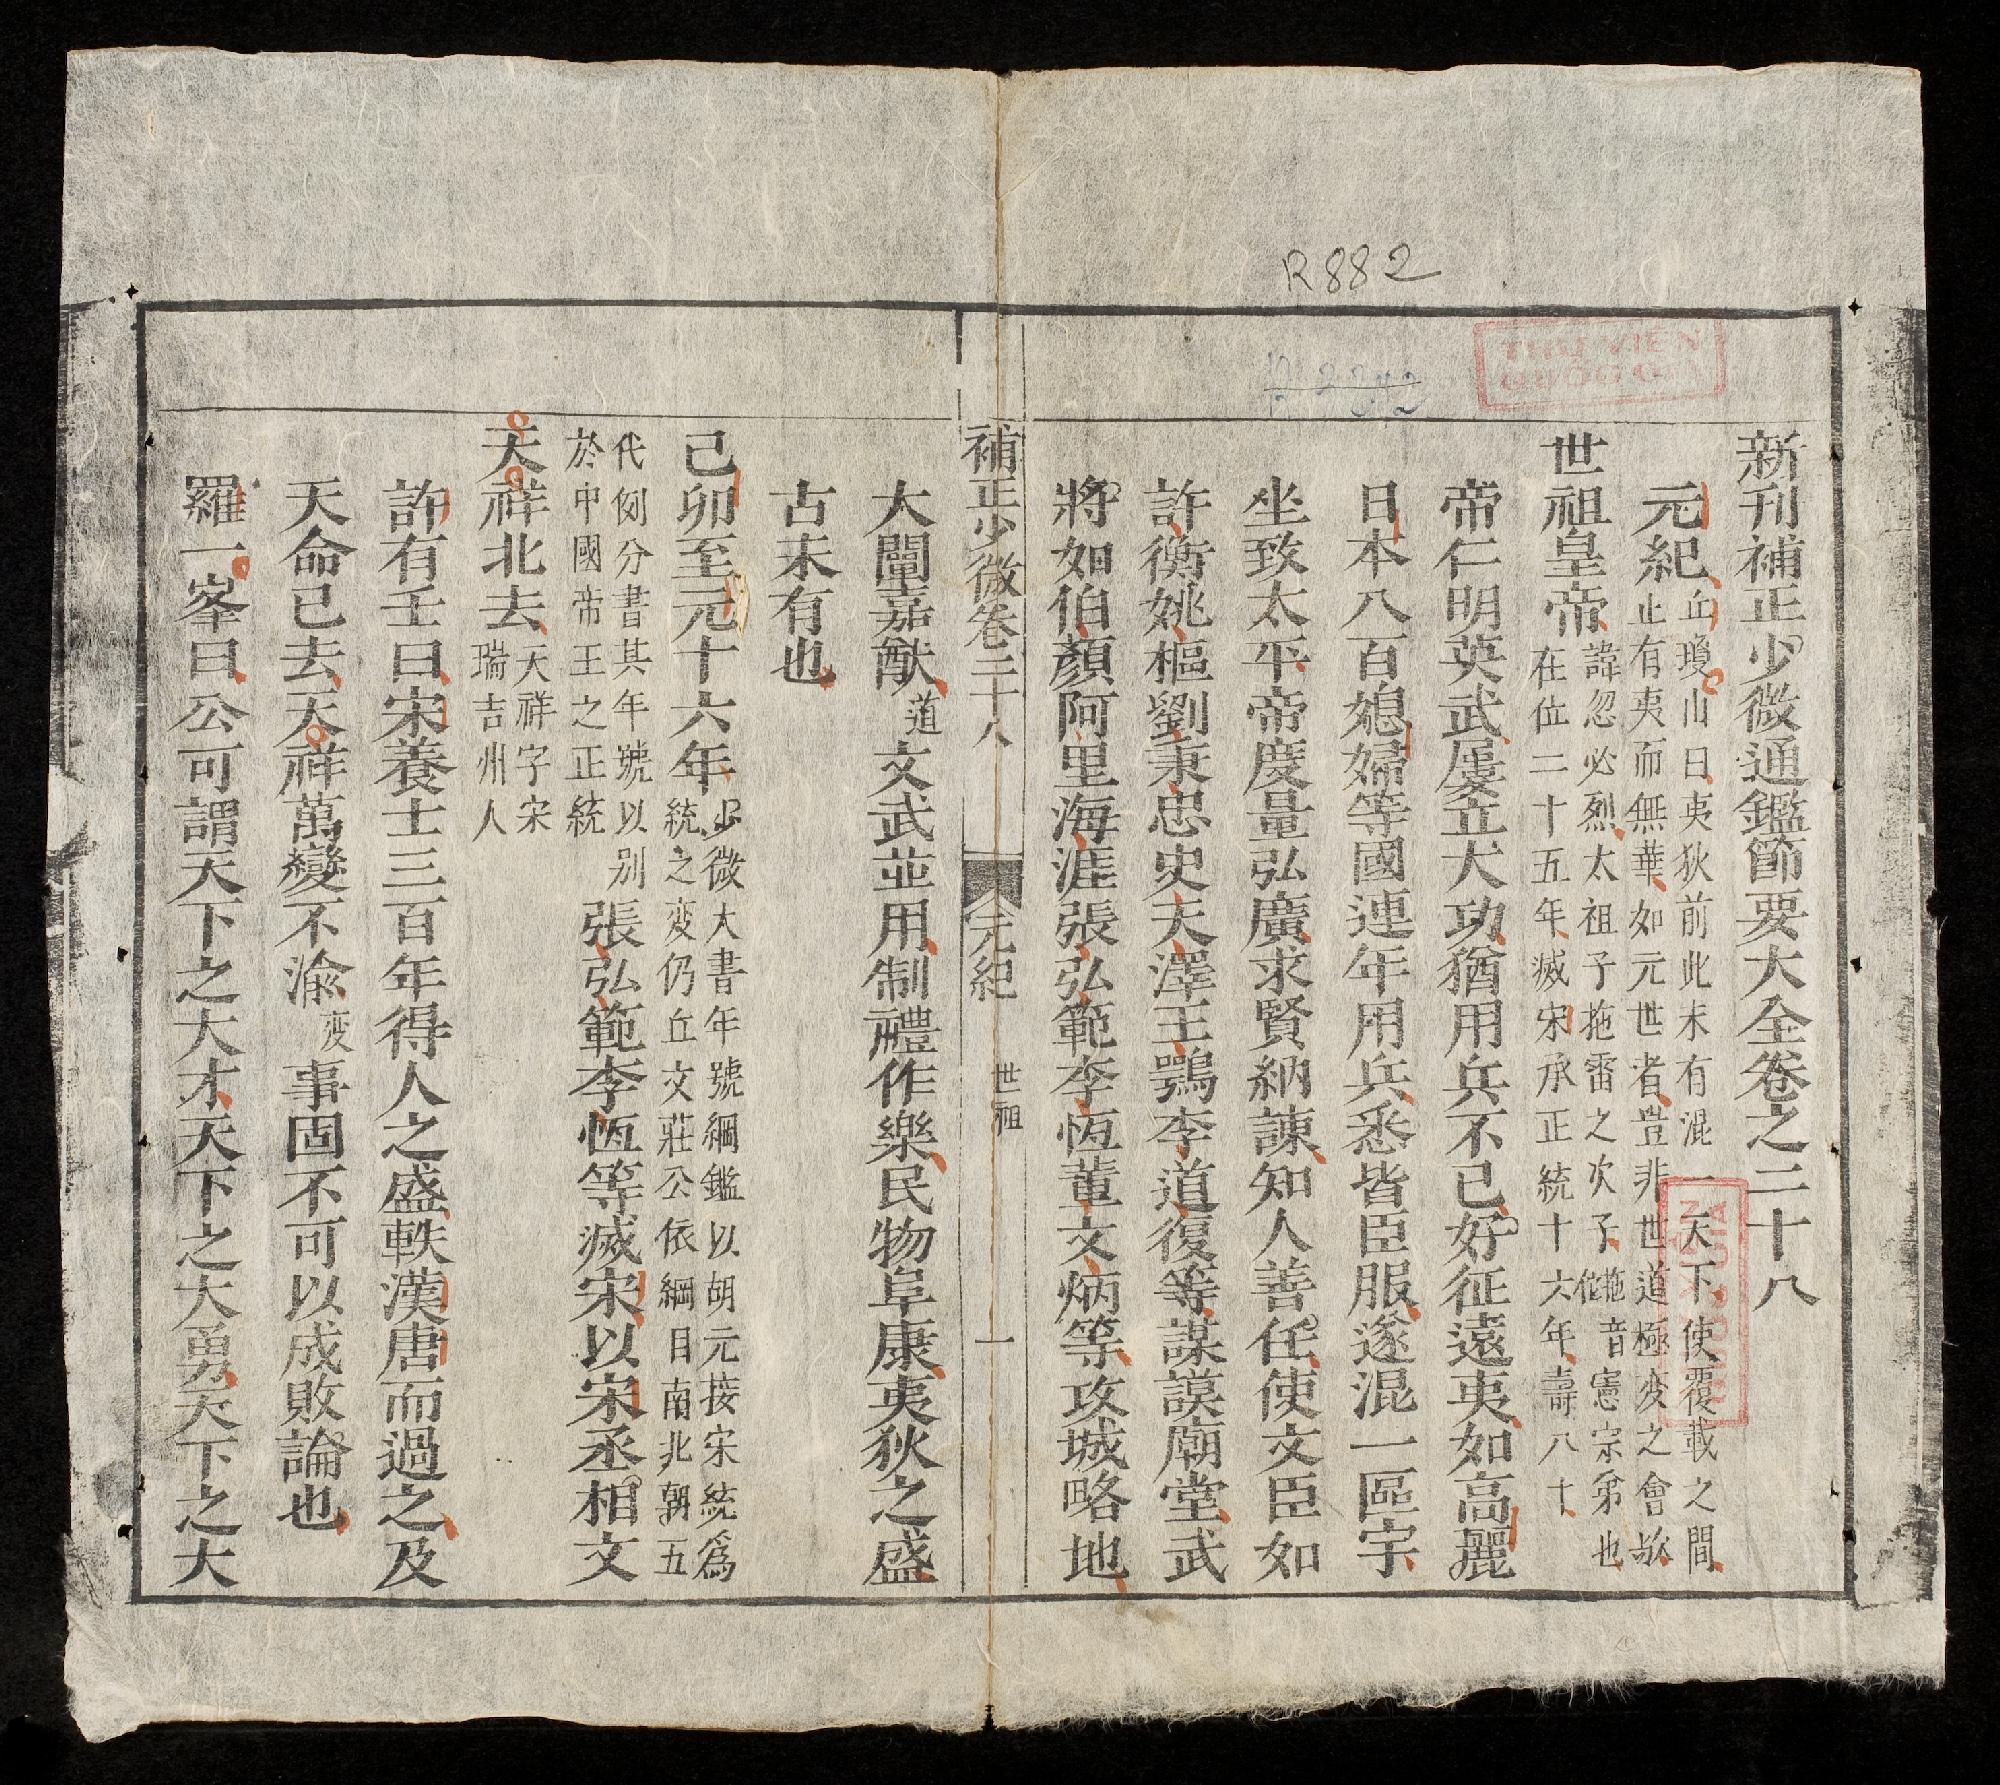 R 882
THƯ VIỆN
QUỐC GIA
新刊補正少微通鑑節要大全卷之二十八
元紀丘瓊山曰夷狄前此未有混一天下使覆載之間
止有夷而無華如元世者豈非世道極变之會欤
世祖皇帝諱忽必烈太祖子拖雷之次子拖音佗憲宗弟也
在位二十五年滅宋承正統十六年壽八十
帝仁明英武屢立大功猶用兵不已好征遠夷如高麗
日本八百媳婦等國連年用兵悉皆臣服遂混一區宇
坐致太平帝度量弘廣求賢納諫知人善任使文臣如
許衡姚樞劉秉忠史天澤王鶚李道復等謀謨廟堂武
將如伯顏阿里海涯張弘範李恆董文炳等攻城略地
補正少微卷二十八
元紀
世祖
一
大闡嘉猷道文武並用制禮作樂民物阜康夷狄之盛
古未有也
己卯至元十六年少微大書年號綱鑑以胡元接宋統爲
統之変仍丘文莊公依綱目南北朝五
代例分書其年號以別
於中國帝王之正統
張弘範李恆等滅宋以宋丞相文
天祥北去天祥字宋
瑞吉州人
許有壬曰宋養士三百年得人之盛軼漢唐而過之及
天命已去天祥萬變不渝変事固不可以成敗論也
羅一峯曰公可謂天下之大才天下之大勇天下之大